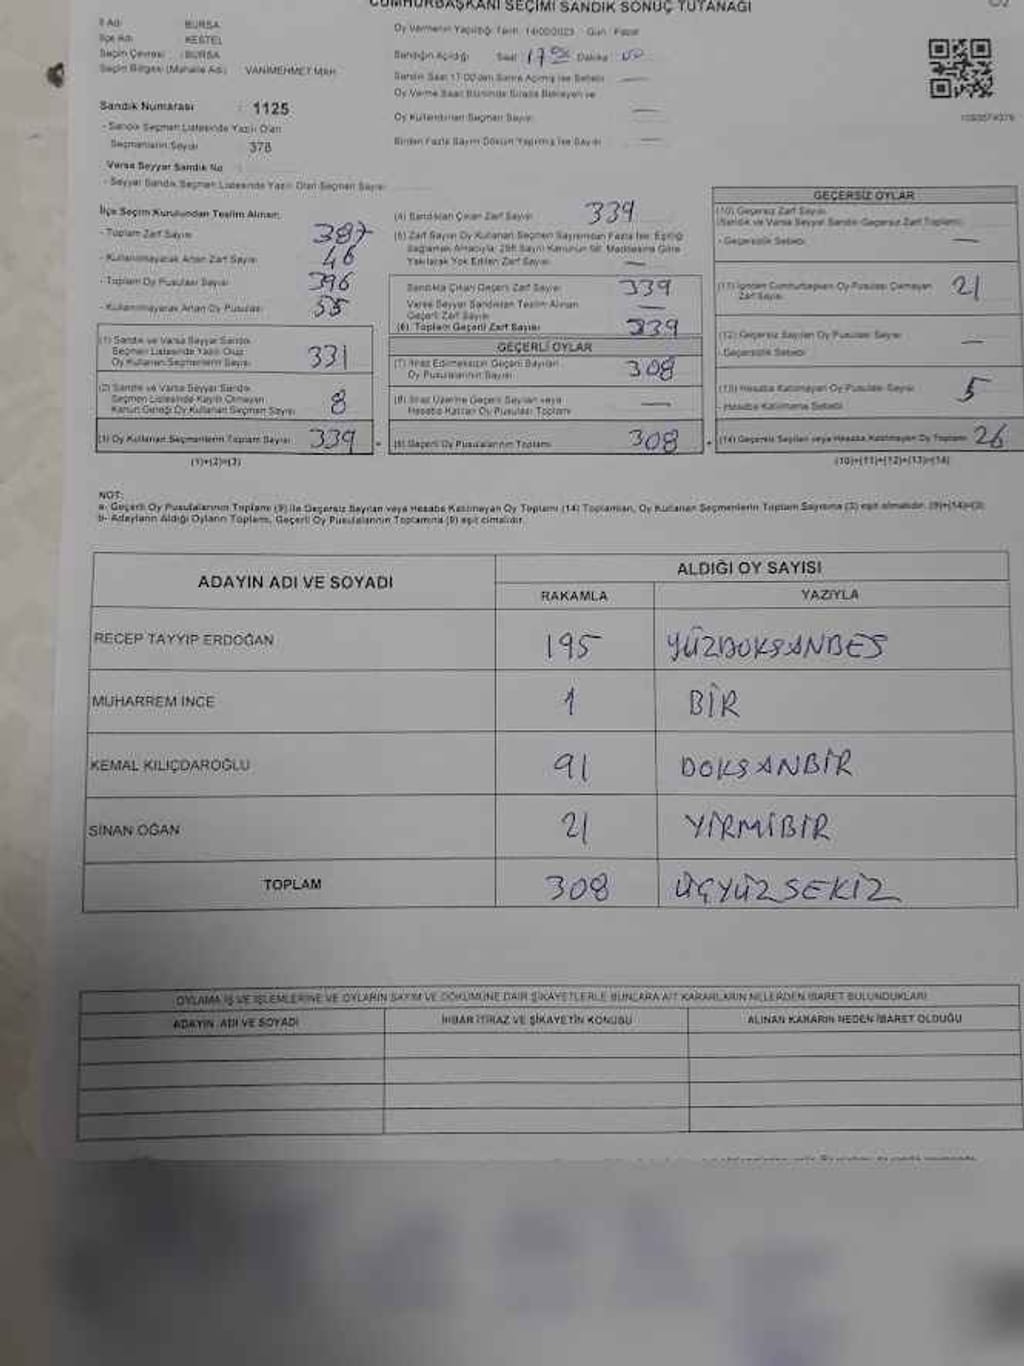 CUMHURBAŞKANI SEÇİMİ SANDIK SONUÇ TUTANAĞI
İl Adı : BURSA
İlçe Adı : KESTEL
Seçim Çevresi : BURSA
Seçim Bölgesi (Mahalle Adı) VANİMEHMET MAH.
Sandık Numarası : 1125
- Sandık Seçmen Listesinde Yazılı Olan
Seçmenlerin Sayısı 378
Varsa Seyyar Sandık No :
- Seyyar Sandık Seçmen Listesinde Yazılı Olan Seçmen Sayısı
Oy Vermenin Yapıldığı Tarih : 14/05/2023 Gün : Pazar
Sandığın Açıldığı Saat : 17 Dakika :
Sandık Saat 17:00'den Sonra Açılmış İse Sebebi
Oy Verme Saati Bitiminde Sırada Bekleyen ve
Oy Kullandırılan Seçmen Sayısı —
Birden Fazla Sayım Döküm Yapılmış İse Sayısı —
İlçe Seçim Kurulundan Teslim Alınan:
- Toplam Zarf Sayısı 387
- Kullanılmayarak Artan Zarf Sayısı 46
- Toplam Oy Pusulası Sayısı 396
- Kullanılmayarak Artan Oy Pusulası 55
(1) Sandık ve Varsa Seyyar Sandık
Seçmen Listesinde Yazılı Olup
Oy Kullanan Seçmenlerin Sayısı 331
(2) Sandık ve Varsa Seyyar Sandık
Seçmen Listesinde Kayıtlı Olmayan
Kanun Gereği Oy Kullanan Seçmen Sayısı 8
(3) Oy Kullanan Seçmenlerin Toplam Sayısı 339
(1)+(2)=(3)
(4) Sandıktan Çıkan Zarf Sayısı 339
(5) Zarf Sayısı Oy Kullanan Seçmen Sayısından Fazla İse, Eşitliği
Sağlamak Amacıyla, 298 Sayılı Kanunun 98. Maddesine Göre
Yakılarak Yok Edilen Zarf Sayısı —
Sandıkta Çıkan Geçerli Zarf Sayısı 339
Varsa Seyyar Sandıktan Teslim Alınan
Geçerli Zarf Sayısı —
(6) Toplam Geçerli Zarf Sayısı 339
GEÇERLİ OYLAR
(7) İtiraz Edilmeksizin Geçerli Sayılan
Oy Pusulalarının Sayısı 308
(8) İtiraz Üzerine Geçerli Sayılan veya
Hesaba Katılan Oy Pusulası Toplamı —
(9) Geçerli Oy Pusulalarının Toplamı 308
GEÇERSİZ OYLAR
(10) Geçersiz Zarf Sayısı
(Sandık ve Varsa Seyyar Sandık Geçersiz Zarf Toplamı)
- Geçersizlik Sebebi —
(11) İçinden Cumhurbaşkanı Oy Pusulası Çıkmayan
Zarf Sayısı 21
(12) Geçersiz Sayılan Oy Pusulası Sayısı —
- Geçersizlik Sebebi
(13) Hesaba Katılmayan Oy Pusulası Sayısı 5
- Hesaba Katılmama Sebebi
(14) Geçersiz Sayılan veya Hesaba Katılmayan Oy Toplamı 26
(10)+(11)+(12)+(13)=(14)
NOT:
a- Geçerli Oy Pusulalarının Toplamı (9) ile Geçersiz Sayılan veya Hesaba Katılmayan Oy Toplamı (14) Toplamları, Oy Kullanan Seçmenlerin Toplam Sayısına (3) eşit olmalıdır. (9)+(14)=(3)
b- Adayların Aldığı Oyların Toplamı, Geçerli Oy Pusulalarının Toplamına (9) eşit olmalıdır.
ADAYIN ADI VE SOYADI ALDIĞI OY SAYISI
RAKAMLA YAZIYLA
RECEP TAYYIP ERDOĞAN 195 YÜZDOKSANBEŞ
MUHARREM İNCE 1 BİR
KEMAL KILIÇDAROĞLU 91 DOKSANBİR
SİNAN OĞAN 21 YİRMİBİR
TOPLAM 308 ÜÇYÜZSEKİZ
OYLAMA İŞ VE İŞLEMLERİNE VE OYLARIN SAYIM VE DÖKÜMÜNE DAİR ŞİKAYETLERLE BUNLARA AİT KARARLARIN NELERDEN İBARET BULUNDUKLARI
ADAYIN ADI VE SOYADI İHBAR İTİRAZ VE ŞİKAYETİN KONUSU ALINAN KARARIN NEDEN İBARET OLDUĞU